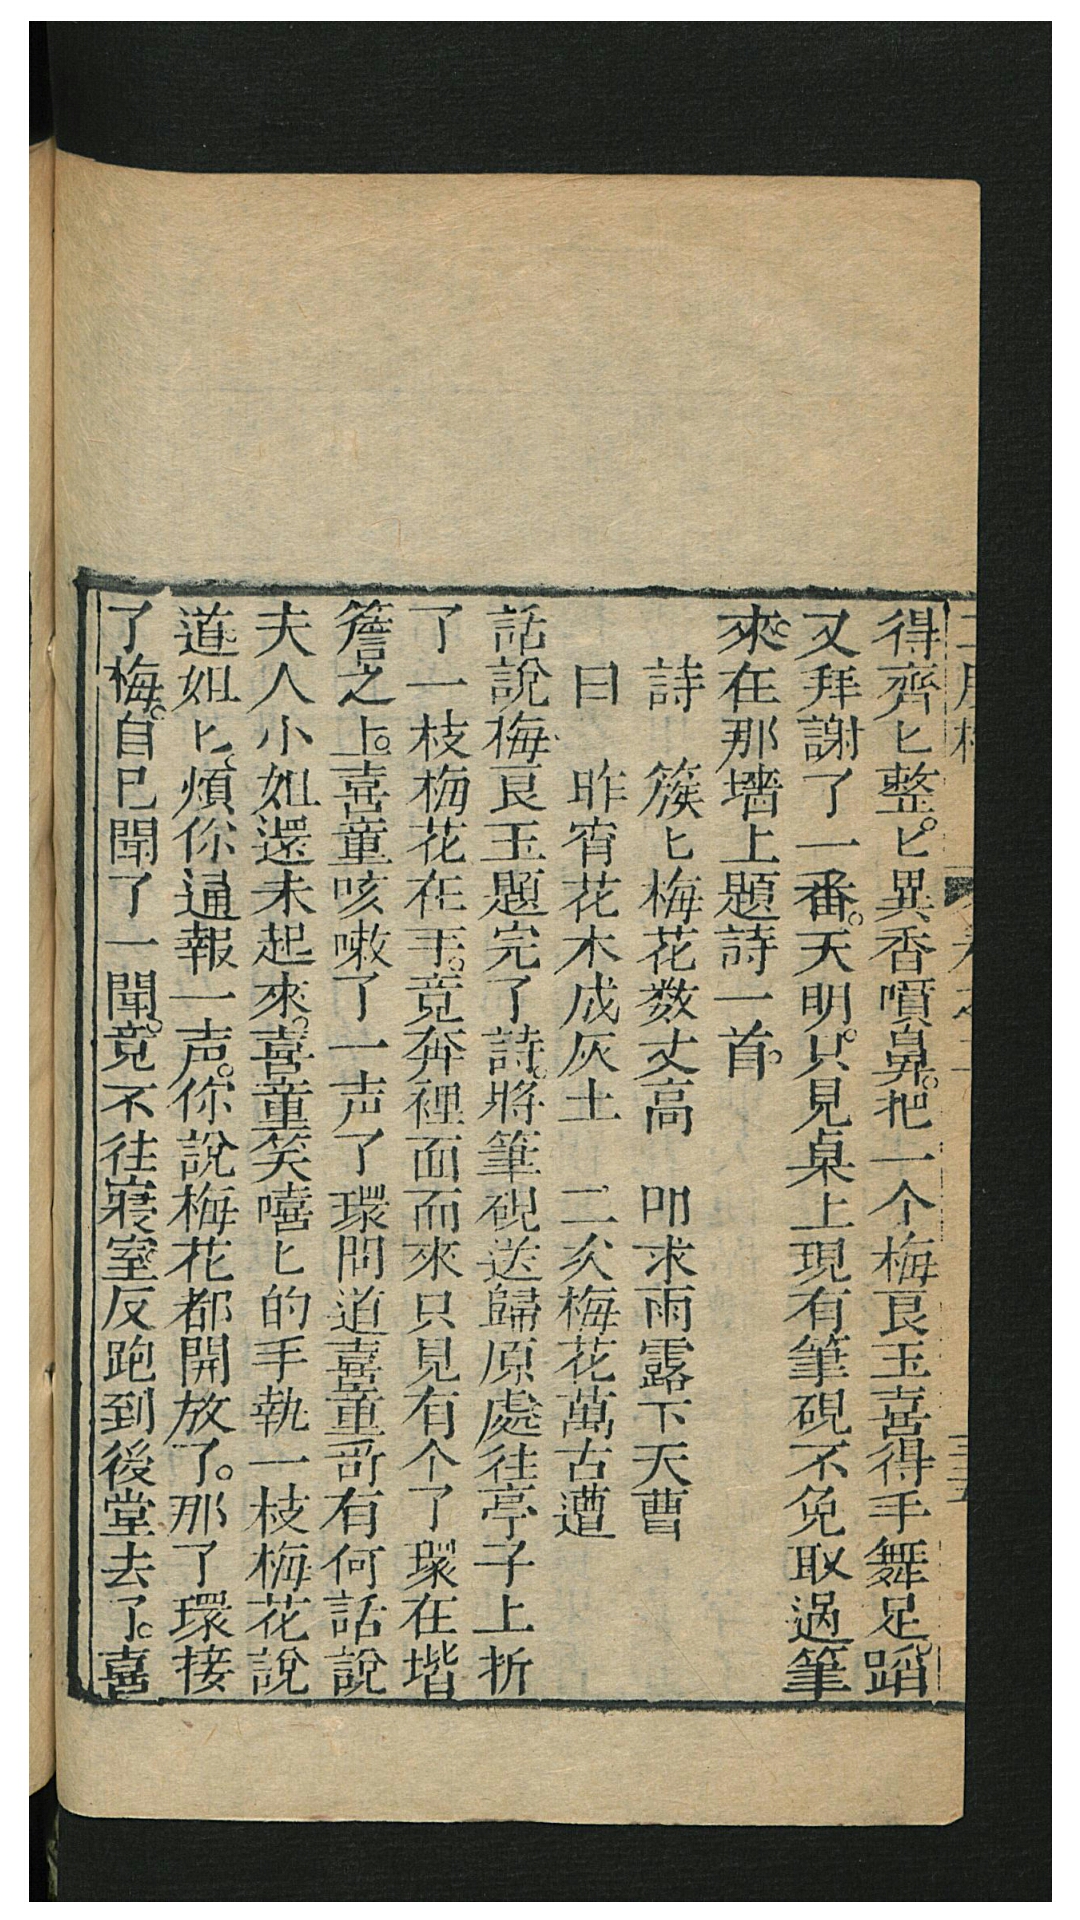 得齊匕整匕。異香噴鼻。把一个梅良玉喜得手舞足。蹈
又拜謝了一番。天明。只見桌上現有筆硯不免取過筆
來。在那墻上題詩一首。
詩　簇匕梅花数丈高　叩求雨露下天曹
曰　昨宵花木成灰土　二次梅花萬古遭
話說梅良玉題完了詩。將筆硯送歸原處往亭子上折
了一枝梅花在手。竟奔裡面而來只見有个了環在堦
簷之上。喜童咳嗽了一声了環問道喜童哥有何話說
夫人小姐還未起來。喜童笑嘻匕的手執一枝梅花說
道姐匕、煩你通報一声。你說梅花都開放了。那了環接
了梅。自巳聞了一聞。竟不往寢室反跑到後堂去了。喜